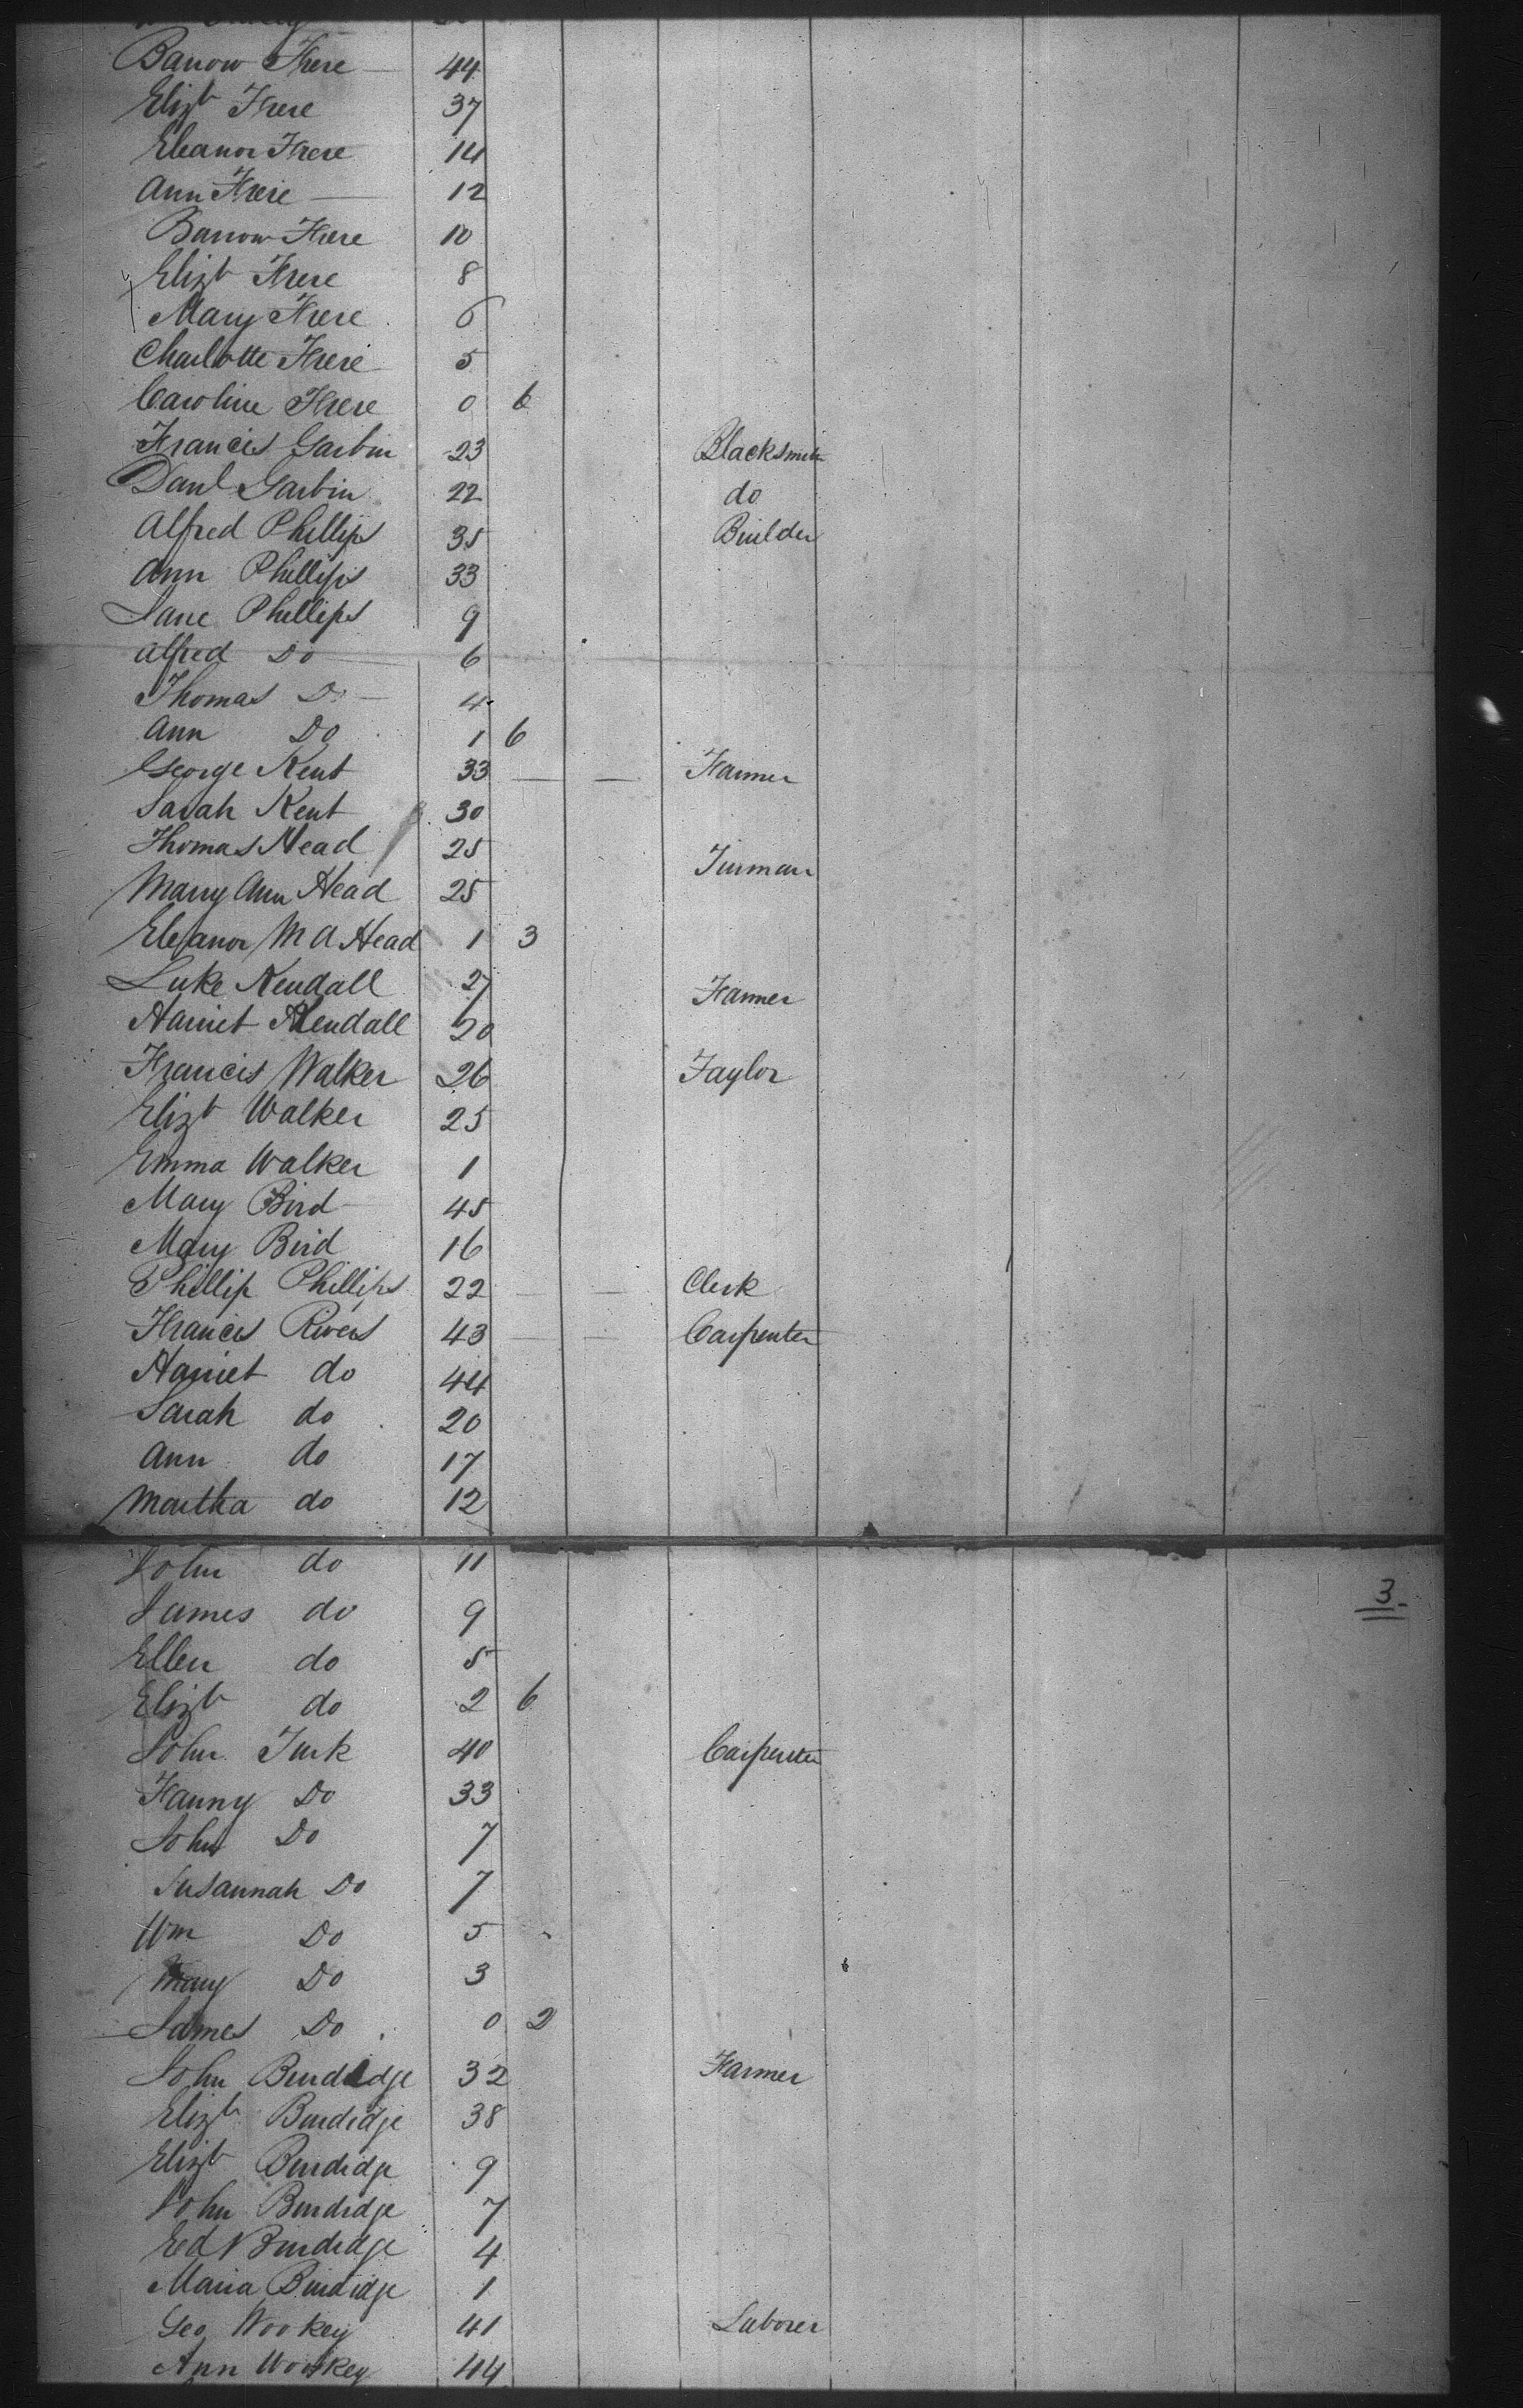 Barrow Frere 44
Elizt Frere 37
Eleanor Frere 14
Ann Frere 12
Barrow Frere 10
Elizt Frere 8
Mary Frere 6
Charlotte Frere 5
Caroline Frere 0 6
Francis Garbin 23 Blacksmith
Danl Garbin 22 do
Alfred Phillips 35 Builder
Ann Phillips 33
Jane Phillips 9
Alfred Do 6
Thomas Do 4
Ann Do 1 6
George Kent 33 — — Farmer
Sarah Kent 30
Thomas Head 25 Turman
Mary Ann Head 25
Eleanor M A Head 1 3
Luke Kendall 27 Farmer
Harriet Kendall 20
Francis Walker 26 Taylor
Elizt Walker 25
Emma Walker 1
Mary Bird 45
Mary Bird 16
Phillip Phillips 22 — — Clerk
Francis Rivers 43 — — Carpenter
Harriet do 44
Sarah do 20
Ann do 17
Martha do 12
John do 11
3
James do 9
Ellen do 5
Elizt do 2 6
John Turk 40 Carpenter
Fanny Do 33
John Do 7
Susannah Do 7
Wm Do 5
Mary Do 3
James Do 0 2
John Burdidge 32 Farmer
Elizt Burdidge 38
Elizt Burdidge 9
John Burdidge 7
Ed Burdidge 4
Maria Burdidge 1
Geo Wookey 41 Laborer
Ann Wookey 44